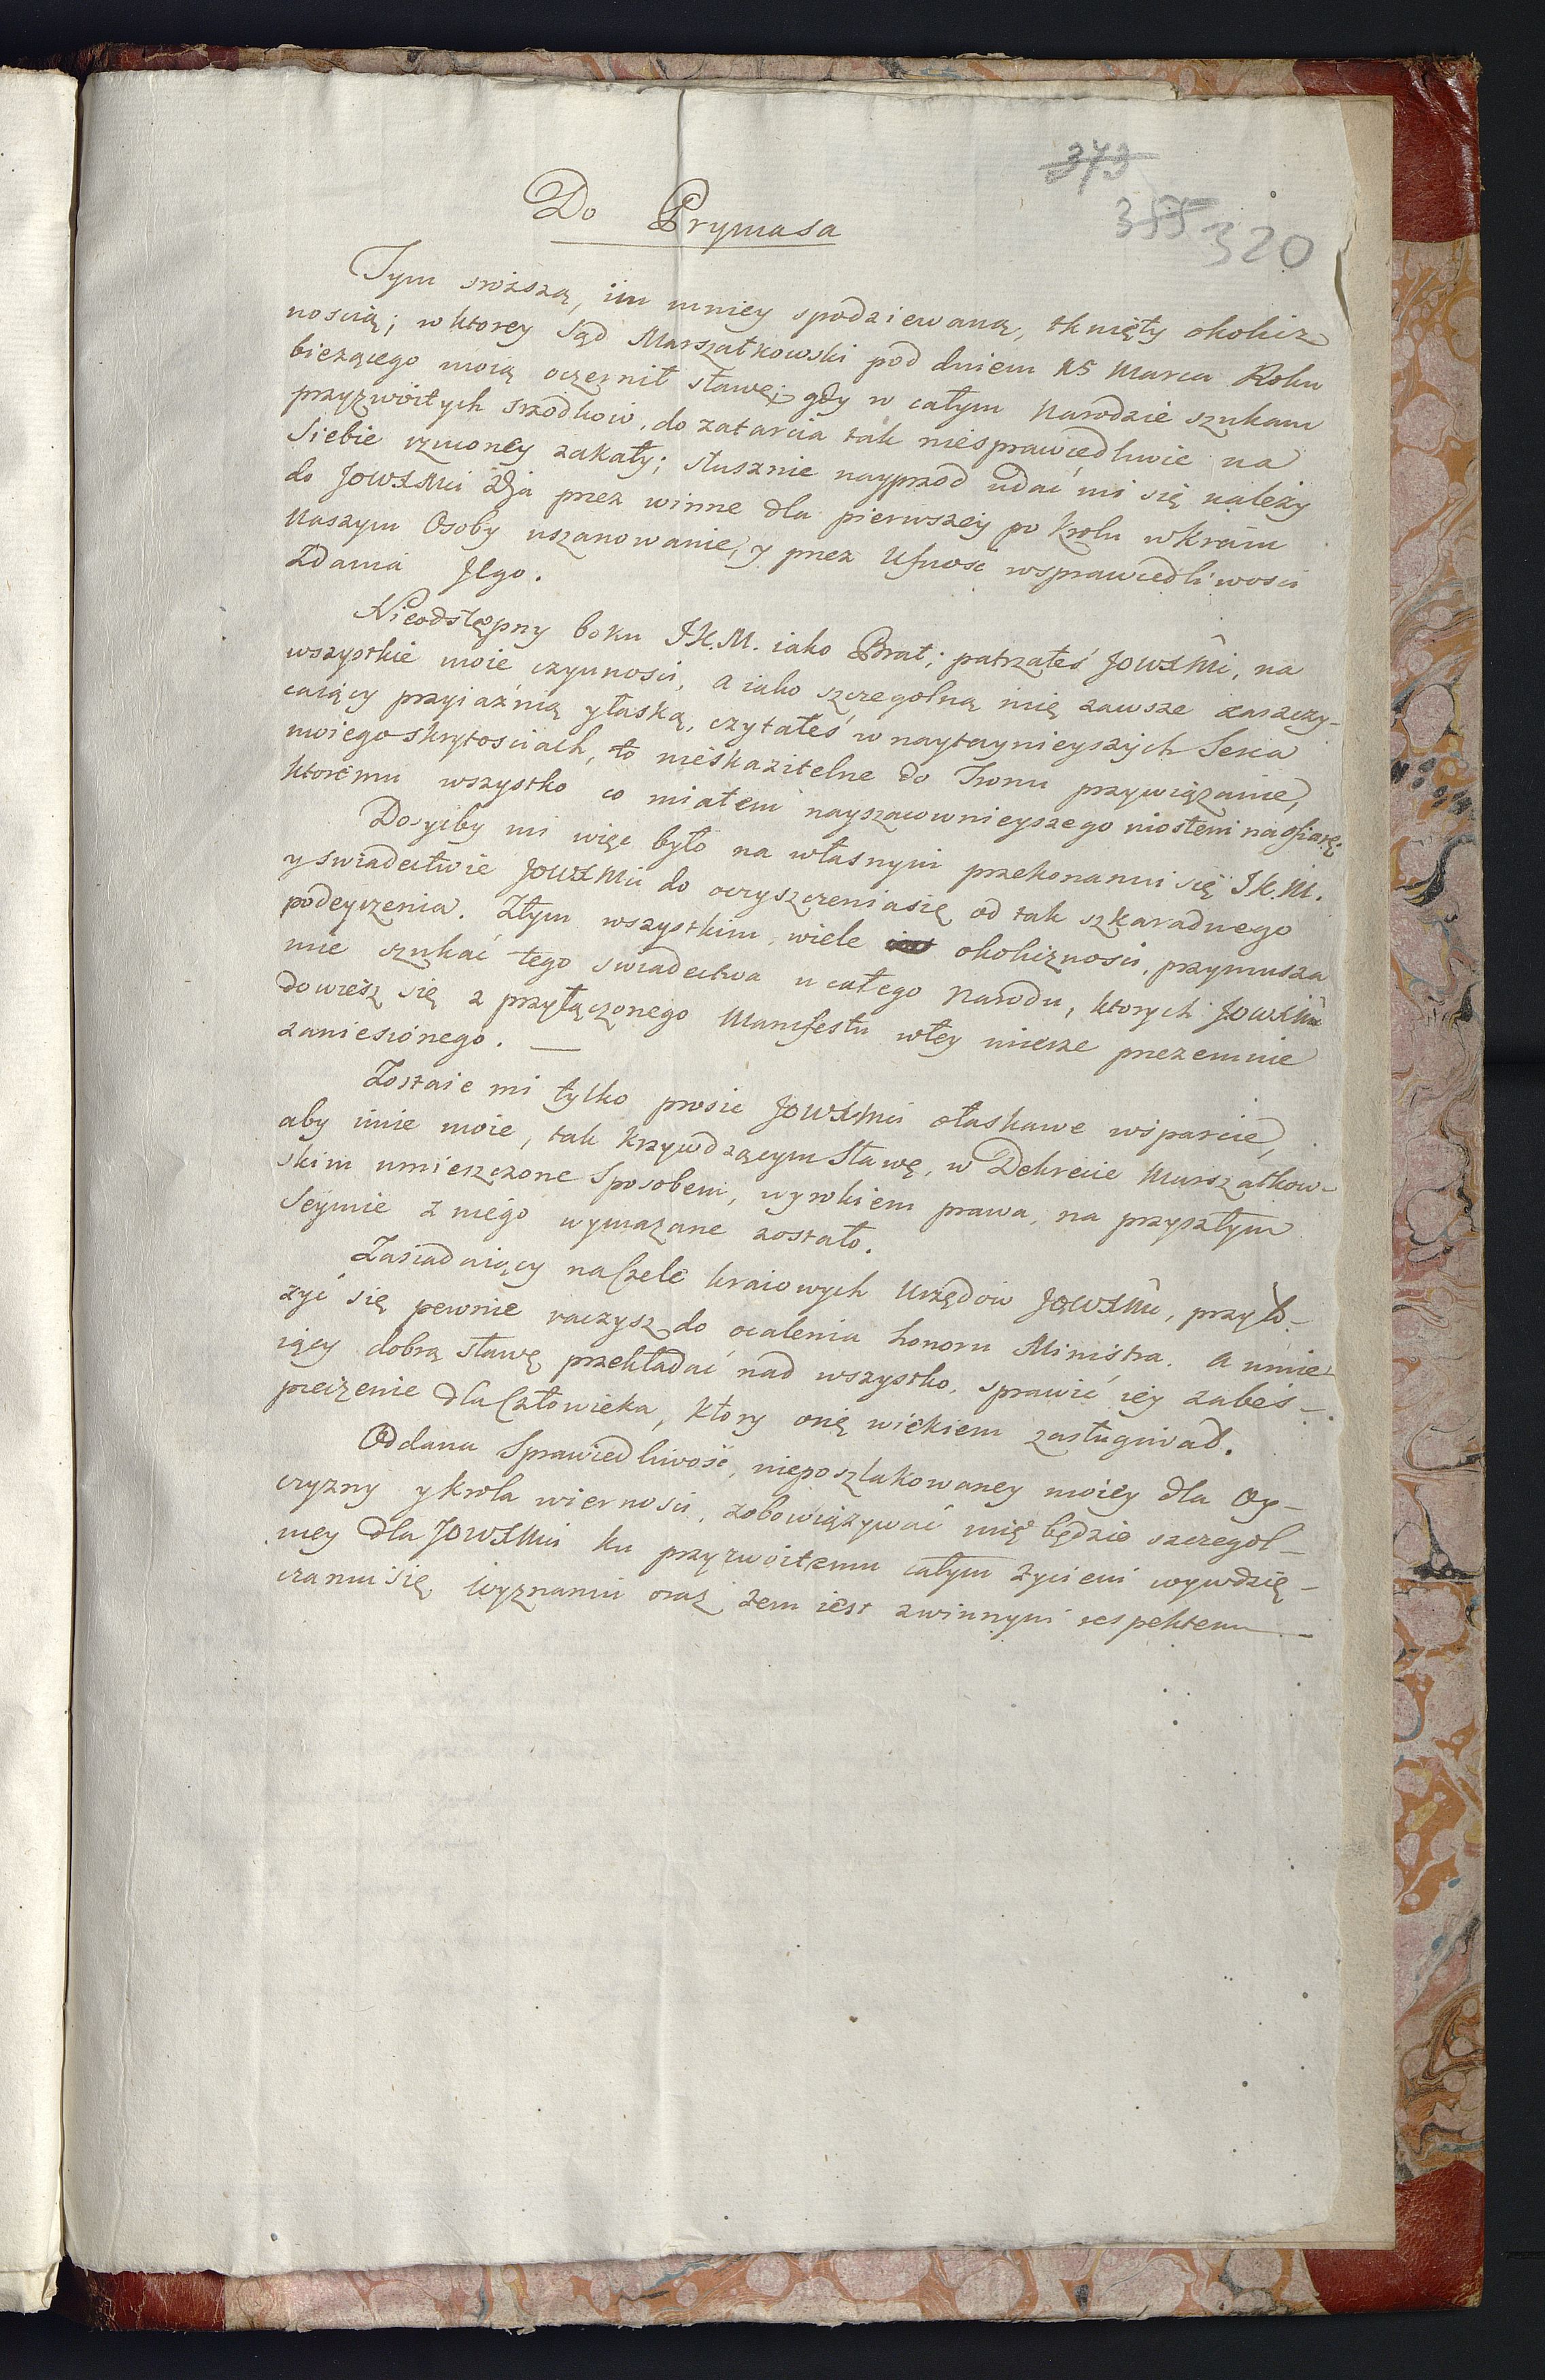 373
355 320
Do Prymasa
Tym sroższą, im mniey spodziewaną, tknięty okolicz
nością; w ktorey Sąd Marszałkowski pod dniem 15 Marca Roku
bieżącego moią oczernił sławę; gdy w całym Narodzie szukam
przyzwoitych srzodkow, do zatarcia tak niesprawiedliwie na
Siebie rzuconey zakały; słusznie nayprzod udać mi się należy
do JOWXMci Dja przez winne dla pierwszey po Krolu w kraiu
Naszym Osoby uszanowanie, y przez Ufnosc wsprawiedliwosci
Zdania Jego.
Nieodstępny boku J.K.M. iako Brat; patrzałeś JOWXMći, na
wszystkie moie czynnosci, a iako szczegolną mię zawsze zaszczy-
caiący przyiaźnią y łaską, czytałeś w naytaynieyszych Serca
moiego skrytosciach, to nieskazitelne do Tronu przywiązanie,
ktoremu wszystko co miałem nayszacownieyszego niosłem na ofiarę.
Dosyćby mi więc było na własnym przekonaniu się J.K.M.
y swiadectwie JOWXMci do oczyszczenia się od tak szkaradnego
podeyrzenia. Ztym wszystkim wiele okolicznosci, przymusza
mie szukać tego swiadectwa u całego Narodu, ktorych JOWXMć
dowiesz się z przyłączonego Manifestu wtey mierze przezemnie
zaniesionego. —
Zostaie mi tylko prosic JOWXMci ołaskawe wsparcie,
aby imie moie, tak krzywdzącym Sławę, w Dekrecie Marszałkow-
skim umieszczone Sposobem, wyrokiem prawa, na przyszłym
Seymie z niego wymazane zostało.
Zasiadaiący na Czele kraiowych Urzędow JOWXMć, przyło-
żyć się pewnie raczysz do ocalenia honoru Ministra. A umie-
iący dobrą sławę przekładać nad wszystko, sprawić iey zabes-
pieczenie dla Człowieka, ktory onę wiekiem zasługiwał.
Oddana Sprawiedliwość, nieposzlakowaney moiey dla Oy-
czyzny y Krola wiernosci, zobowiązywać mię będzie szczegol-
niey dla JOWXMci ku przyzwoitemu całym życiem wywdzię-
czaniu się wyznaniu oraz żem iest zwinnym respektem —